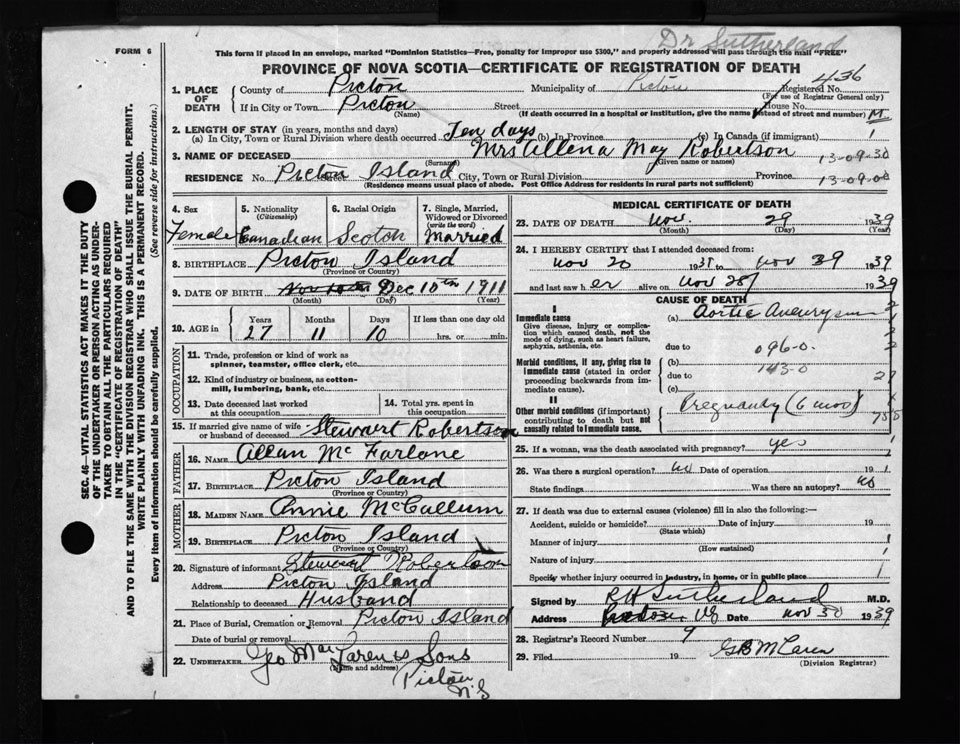 Dr Sutherland
FORM 6
This form if placed in an envelope, marked "Dominion Statistics—Free, penalty for improper use $300," and properly addressed will pass through the mail "FREE"
PROVINCE OF NOVA SCOTIA—CERTIFICATE OF REGISTRATION OF DEATH
436
1. PLACE OF DEATH County of Pictou Municipality of Pictou Registered No.
(For use of Registrar General only)
If in City or Town Pictou Street House No.
(Name) (If death occurred in a hospital or institution, give the name instead of street and number) M
2. LENGTH OF STAY (in years, months and days)
(a) In City, Town or Rural Division where death occurred Ten days (b) In Province (c) In Canada (if immigrant) 1
3. NAME OF DECEASED Mrs Allena May Robertson 13-09-30
(Surname) (Given name or names)
RESIDENCE No. Pictou Island Street City, Town or Rural Division Province 13-09-00
(Residence means usual place of abode. Post Office Address for residents in rural parts not sufficient)
4. Sex Female
5. Nationality (Citizenship) Canadian
6. Racial Origin Scotch
7. Single, Married, Widowed or Divorced (write the word) Married
8. BIRTHPLACE Pictou Island
(Province or Country)
9. DATE OF BIRTH Nov 10th Dec 10th 1911
(Month) (Day) (Year)
10. AGE in Years 27 Months 11 Days 10 If less than one day old hrs. or min.
OCCUPATION
11. Trade, profession or kind of work as spinner, teamster, office clerk, etc.
12. Kind of industry or business, as cotton-mill, lumbering, bank, etc.
13. Date deceased last worked at this occupation
14. Total yrs. spent in this occupation
15. If married give name of wife or husband of deceased Stewart Robertson
FATHER
16. Name Allan McFarlane
17. Birthplace Pictou Island
(Province or Country)
MOTHER
18. Maiden Name Annie McCallum
19. Birthplace Pictou Island
(Province or Country)
20. Signature of informant Stewart Robertson
Address Pictou Island
Relationship to deceased Husband
21. Place of Burial, Cremation or Removal Pictou Island
Date of burial or removal
22. UNDERTAKER Geo MacLaren & Sons
(Name and address) Pictou
N.S
MEDICAL CERTIFICATE OF DEATH
23. DATE OF DEATH Nov. 29 1939
(Month) (Day) (Year)
24. I HEREBY CERTIFY that I attended deceased from:
Nov 20 193 to Nov 29 1939
and last saw her alive on Nov 28 1939
CAUSE OF DEATH
I
Immediate cause (a) Aortic Aneurysm
Give disease, injury or complication which caused death, not the mode of dying, such as heart failure, asphyxia, asthenia, etc.
due to 096-0.
Morbid conditions, if any, giving rise to immediate cause (stated in order proceeding backwards from immediate cause).
(b) 143-0
due to
(c)
II
Other morbid conditions (if important) contributing to death but not causally related to immediate cause.
Pregnancy (6 mos)
25. If a woman, was the death associated with pregnancy? yes
26. Was there a surgical operation? no Date of operation 19
State findings Was there an autopsy? no
27. If death was due to external causes (violence) fill in also the following:—
Accident, suicide or homicide? Date of injury 19
(State which)
Manner of injury
(How sustained)
Nature of injury
Specify whether injury occurred in industry, in home, or in public place
Signed by R H Sutherland M.D.
Address Date Nov 30 1939
28. Registrar's Record Number 9
29. Filed 19 G B McLaren
(Division Registrar)
SEC. 46—VITAL STATISTICS ACT MAKES IT THE DUTY
OF THE UNDERTAKER OR PERSON ACTING AS UNDER-
TAKER TO OBTAIN ALL THE PARTICULARS REQUIRED
IN THE "CERTIFICATE OF REGISTRATION OF DEATH"
AND TO FILE THE SAME WITH THE DIVISION REGISTRAR WHO SHALL ISSUE THE BURIAL PERMIT.
WRITE PLAINLY WITH UNFADING INK. THIS IS A PERMANENT RECORD.
Every item of information should be carefully supplied. (See reverse side for instructions.)